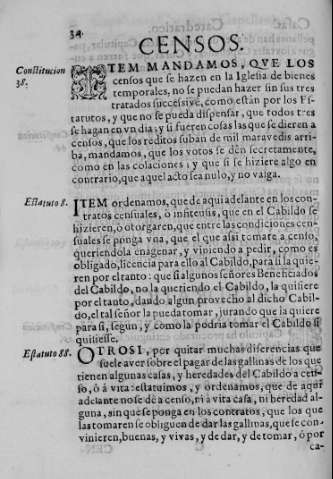 34
CENSOS.
Constitucion 38.
ITEM MANDAMOS, QVE LOS
censos que se hazen en la Iglesia de bienes
temporales, no se puedan hazer sin sus tres
tratados successive, como están por los Es-
tatutos, y que no se pueda dispensar, que todos tres
se hagan en vn dia: y si fueren cosas las que se dieren a
censos, que los reditos suban de mil maravedis arri-
ba, mandamos, que los votos se dèn secretamente,
como en las colaciones: y que si se hiziere algo en
contrario, que aquel acto sea nulo, y no valga.
Estatuto 8.
ITEM ordenamos, que de aqui adelante en los con-
tratos censuales, ò infiteusis, que en el Cabildo se
hizieren, ò otorgaren, que entre las condiciones cen-
suales se ponga vna, que el que assi tomare a censo,
queriendola enagenar, y viniendo a pedir, como es
obligado, licencia para ello al Cabildo, para si la quie-
ren por el tanto: que si algunos señores Beneficiados
del Cabildo, no la queriendo el Cabildo, la quisiere
por el tanto, dando algun provecho al dicho Cabil-
do, el tal señor la pueda tomar, jurando que la quiere
para si, segun, y como la podria tomar el Cabildo si
quisiesse.
Estatuto 88.
OTROSI, por quitar muchas diferencias que
suele aver sobre el pagar de las gallinas de los que
tienen algunas casas, y heredades del Cabildo a cen-
so, ò à vita: estatuimos, y ordenamos, que de aqui
adelante no se dè a censo, ni à vita casa, ni heredad al-
guna, sin que se ponga en los contratos, que los que
las tomaren se obliguen de dar las gallinas, que se con-
vinieren, buenas, y vivas, y de dar, y de tomar, ò por
ca-